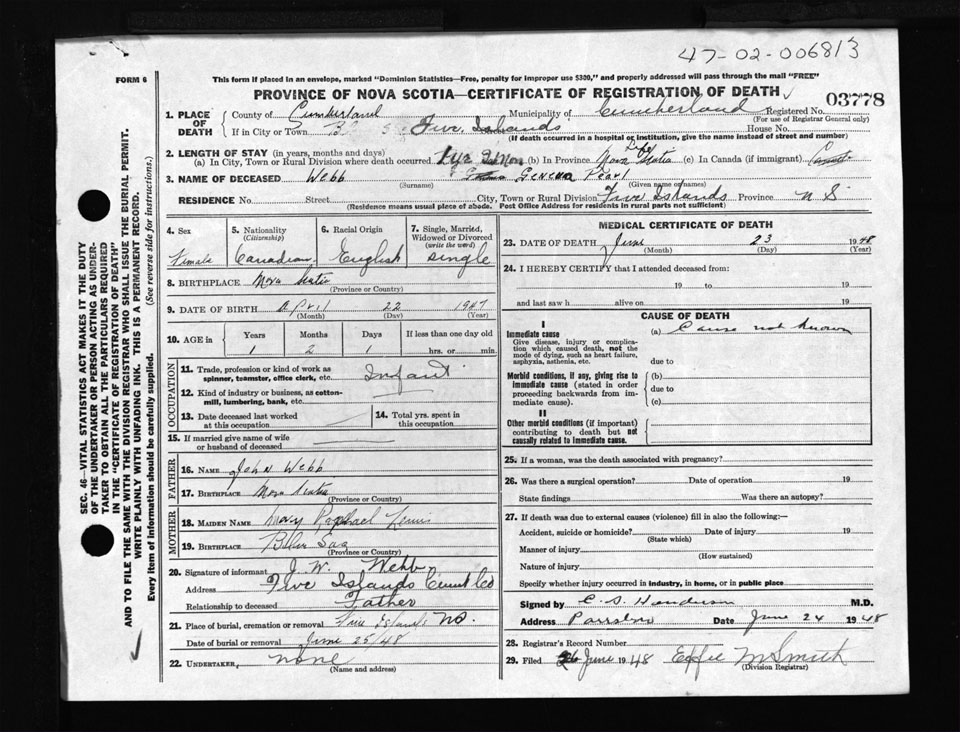 47-02-006813
FORM 6
This form if placed in an envelope, marked "Dominion Statistics—Free, penalty for improper use $300," and properly addressed will pass through the mail "FREE"
PROVINCE OF NOVA SCOTIA—CERTIFICATE OF REGISTRATION OF DEATH
03778
1. PLACE OF DEATH
County of Cumberland Municipality of Cumberland Registered No.
(For use of Registrar General only)
If in City or Town Five Islands House No.
(If death occurred in a hospital or institution, give the name instead of street and number)
2. LENGTH OF STAY (in years, months and days)
(a) In City, Town or Rural Division where death occurred 1 yr 2 Mon (b) In Province Nova Scotia Life (c) In Canada (if immigrant)
3. NAME OF DECEASED Webb Geneva Pearl
(Surname) (Given name or names)
RESIDENCE No. Street City, Town or Rural Division Five Islands Province N S
(Residence means usual place of abode. Post Office Address for residents in rural parts not sufficient)
4. Sex
Female
5. Nationality (Citizenship)
Canadian
6. Racial Origin
English
7. Single, Married, Widowed or Divorced (write the word)
Single
8. BIRTHPLACE Nova Scotia
(Province or Country)
9. DATE OF BIRTH April 22 1947
(Month) (Day) (Year)
10. AGE in
Years Months Days If less than one day old
1 2 1 hrs. or min.
OCCUPATION
11. Trade, profession or kind of work as spinner, teamster, office clerk, etc. Infant
12. Kind of industry or business, as cotton-mill, lumbering, bank, etc.
13. Date deceased last worked at this occupation
14. Total yrs. spent in this occupation
15. If married give name of wife or husband of deceased
FATHER
16. NAME John Webb
17. BIRTHPLACE Nova Scotia
(Province or Country)
MOTHER
18. MAIDEN NAME Mary Raphael Lewis
19. BIRTHPLACE
(Province or Country)
20. Signature of informant J. W. Webb
Address Five Islands Cumb Co
Relationship to deceased Father
21. Place of burial, cremation or removal Five Islands NS.
Date of burial or removal June 25/48
22. UNDERTAKER none
(Name and address)
MEDICAL CERTIFICATE OF DEATH
23. DATE OF DEATH June 23 1948
(Month) (Day) (Year)
24. I HEREBY CERTIFY that I attended deceased from:
19 to 19
and last saw h alive on 19
CAUSE OF DEATH
I
Immediate cause (a) Cause not known
Give disease, injury or complication which caused death, not the mode of dying, such as heart failure, asphyxia, asthenia, etc.
due to
Morbid conditions, if any, giving rise to immediate cause (stated in order proceeding backwards from immediate cause).
(b)
due to
(c)
II
Other morbid conditions (if important) contributing to death but not causally related to immediate cause.
25. If a woman, was the death associated with pregnancy?
26. Was there a surgical operation? Date of operation 19
State findings Was there an autopsy?
27. If death was due to external causes (violence) fill in also the following:—
Accident, suicide or homicide? Date of injury 19
(State which)
Manner of injury
(How sustained)
Nature of injury
Specify whether injury occurred in industry, in home, or in public place
Signed by C. S. Henderson M.D.
Address Parrsboro Date June 24 1948
28. Registrar's Record Number
29. Filed 26 June 1948 Effie M Smith
(Division Registrar)
SEC. 46—VITAL STATISTICS ACT MAKES IT THE DUTY
OF THE UNDERTAKER OR PERSON ACTING AS UNDER-
TAKER TO OBTAIN ALL THE PARTICULARS REQUIRED
IN THE "CERTIFICATE OF REGISTRATION OF DEATH"
AND TO FILE THE SAME WITH THE DIVISION REGISTRAR WHO SHALL ISSUE THE BURIAL PERMIT.
WRITE PLAINLY WITH UNFADING INK. THIS IS A PERMANENT RECORD.
Every item of information should be carefully supplied. (See reverse side for instructions.)